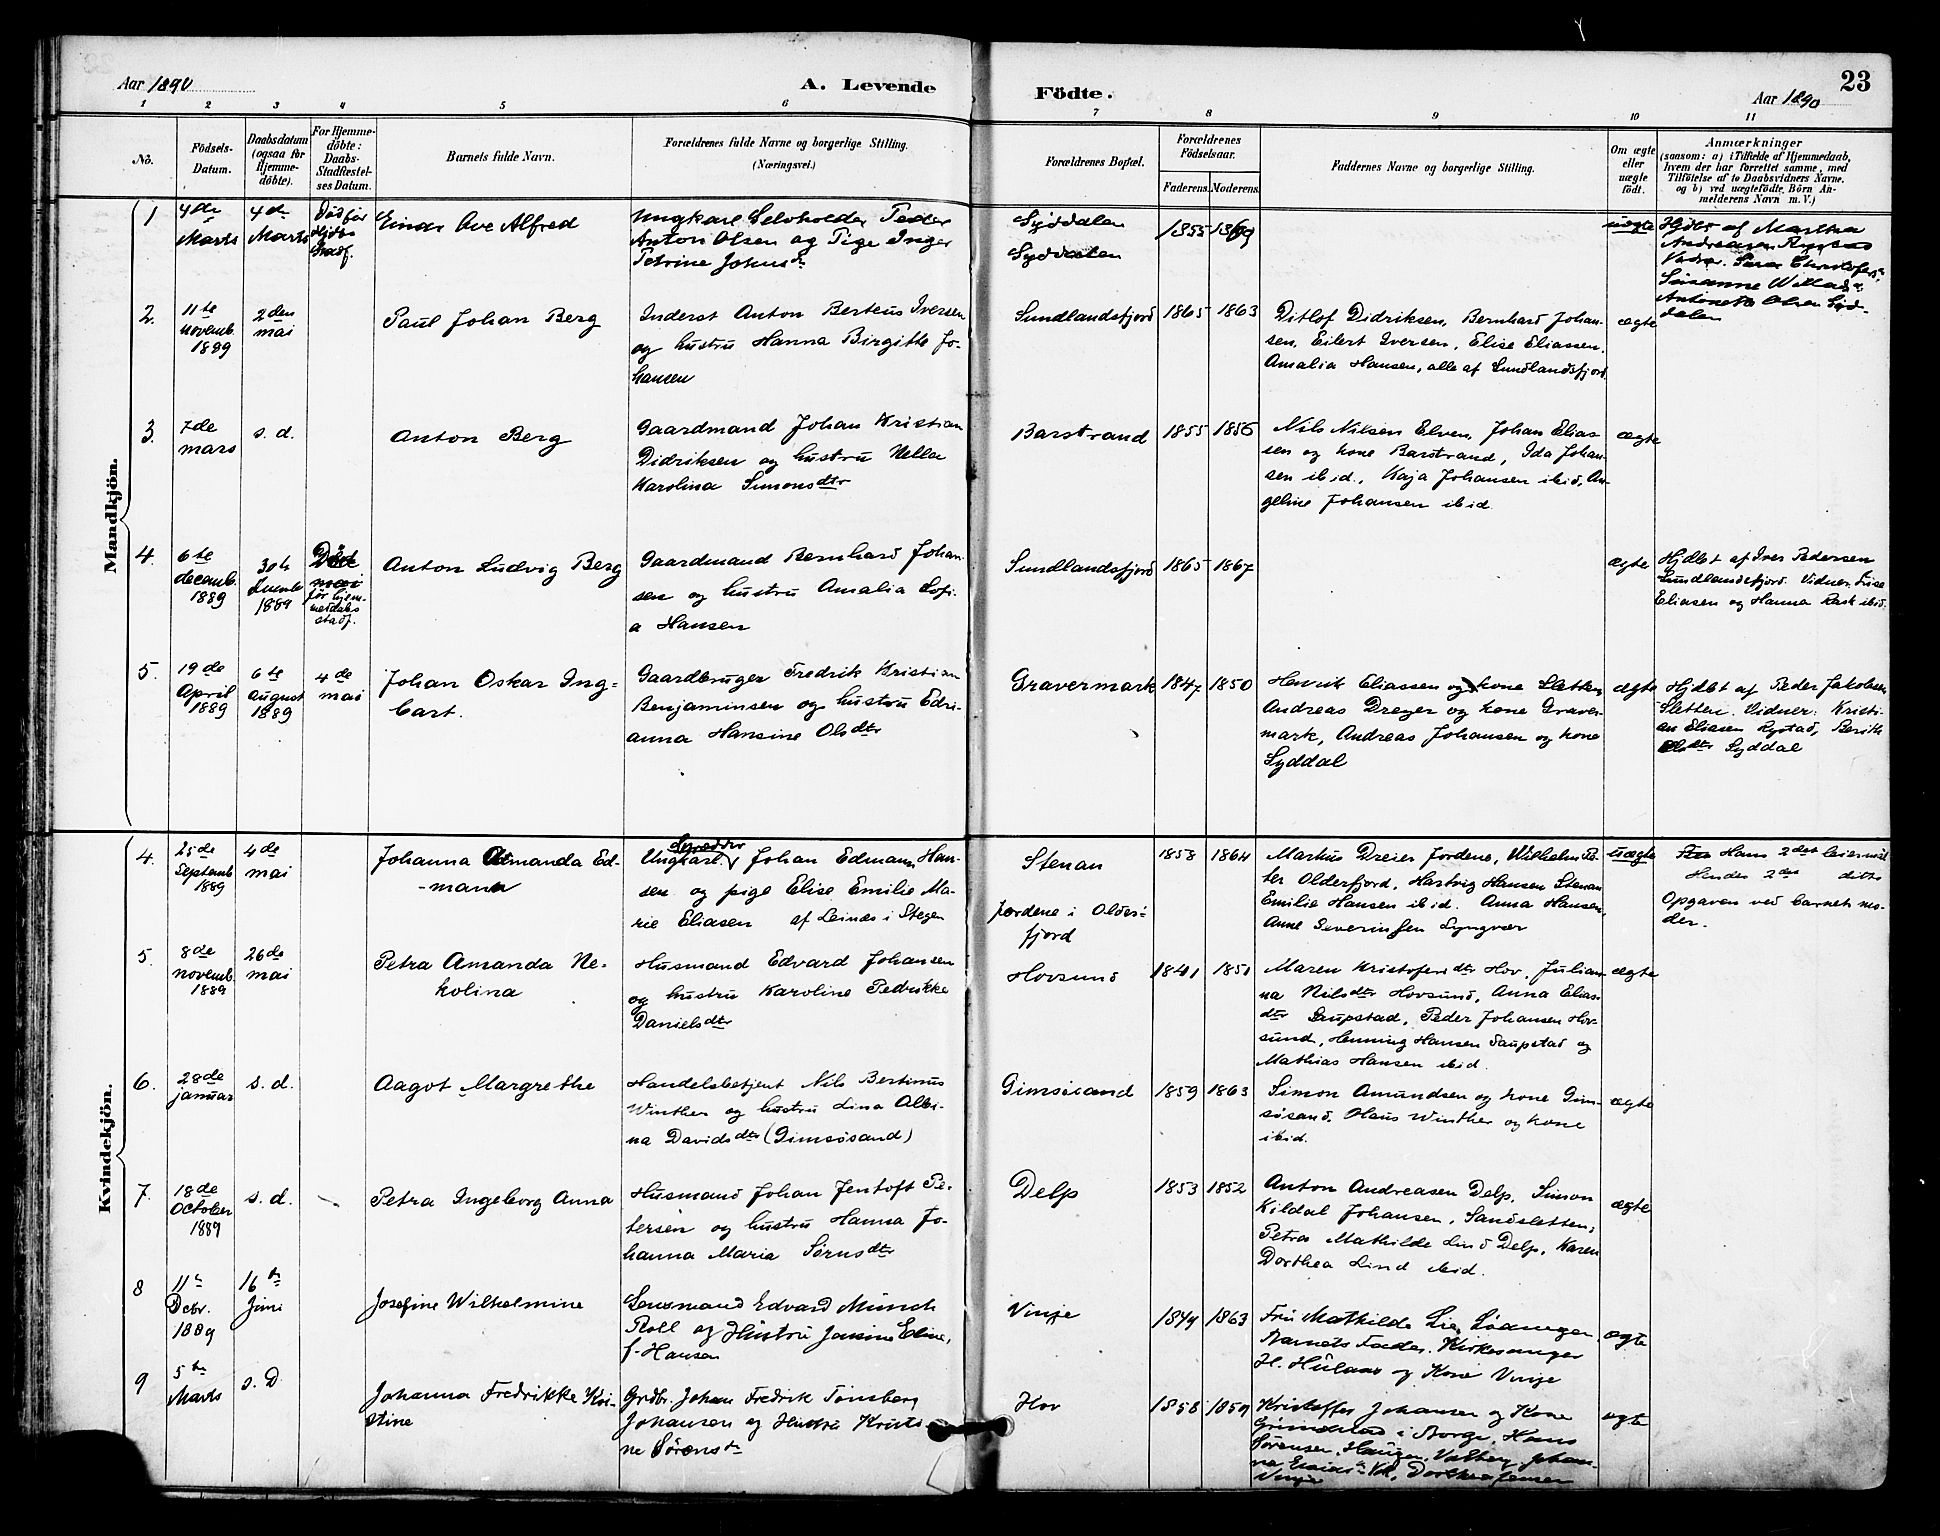 Aar 1890
A. Levende
Födte.
23
Aar 1890
1 2 3 4 5 6 7 8 9 10 11
No.
Födsels-
Datum.
Daabsdatum
(ogsaa for
Hjemme-
döbte).
For Hjemme-
döbte:
Daabs-
Stadfæstel-
ses Datum.
Barnets fulde Navn.
Forældrenes fulde Navne og borgerlige Stilling.
(Næringsvei.)
Forældrenes Bopæl.
Forældrenes
Födselsaar.
Faderens. Moderens.
Faddernes Navne og borgerlige Stilling.
Om ægte
eller
uægte
födt.
Anmærkninger
(saasom: a) i Tilfælde af Hjemmedaab,
hvem der har forrettet samme, med
Tilföielse af to Daabsvidners Navne.
og b) ved uægtefödte Börn An-
melderens Navn m. V.)
Mandkjön.
1
4de
Marts
4de
Marts
Död før
Hjdbs
Stadf.
Einar Ove Alfred
Ungkarl Selvholder Peder
Anton Olsen og Pige Inger
Petrine Johnsdr
Syddalen
Syddalen
1855 1869
uægte
Hjdbt af Martha
Andreasen Rystad
Vidner. Christofers
Susanne
Antonette Olsen Syd-
dalen
2.
11te
novemb.
1889
2den
mai
Paul Johan Berg
Inderst Anton Berteus Iversen
og hustru Hanna Birgitte Jo-
hansen
Sundlandsfjord
1865 1863
Ditlof Didriksen, Bernhard Johan-
sen, Eilert Iversen, Elise Eliassen.
Amalia Hansen, alle af Sundlandsfjord.
ægte
3.
7de
mars
s. d.
Anton Berg
Gaardmand Johan Kristian
Didriksen og hustru Nella
Karolina Simonsdtr
Barstrand
1855 1856
Nils Nilsen Elven, Johan Elias-
sen og kone Barstrand, Ida Johan-
sen ibid., Kaja Johansen ibid, An-
geline Johansen ibid.
ægte
4.
6te
decemb.
1889
30te
1889
Död
mai
før hjem-
medaabs
stadf.
Anton Ludvig Berg
Gaardmand Bernhard Johan-
sen og hustru Amalia Sofi-
a Hansen
Sundlandsfjord
1865 1867
ægte
Hjdbt af Iver Pedersen
Sundlandsfjord. Vidner: Elise
Eliasen og Hanna Rask ibid.
5.
19de
April
1889
6te
august
1889
4de
mai
Johan Oskar Ing-
bart.
Gaardbruger Fredrik Kristian
Benjaminsen og hustru Edri-
anna Hansine Olsdtr
Gravermark
1847 1850
Henrik Eliassen og kone Sletten
Andreas Dreyer og kone Graver-
mark, Andreas Johansen og kone
Syddal
ægte
Hjdbt af Peder Jakobsen
Sletten. Vidner: Kristi-
an Eliasen Rystad, Berith
Olsdtr Syddal
Kvindekjön.
4.
25de
Septemb.
1889
4de
mai
Johanna Amanda Ed-
-manna
Ungkarl Johan Edman Han-
sen og pige Elise Emilie Ma-
rie Eliasen af Leines i Stegen
Stenan
Jordene i Olders-
fjord
1858 1864
Markus Dreier Jordene, Vilhelm Pe-
ter Olderfjord, Hartvig Hansen Stenan
Emilie Hansen ibid. Anna Hansen,
Anne Severinsen Lyngvær
uægte
Hans 2det leiermaal
Hendes 2det ditto
Opgaven ved barnets mo-
der.
5.
8de
novemb.
1889
26de
mai
Petra Amanda Ne-
kolina
Husmand Edvard Johansen
og hustru Karoline Pedrikke
Danielsdtr
Hovsund
1841 1851
Maren Kristofersdtr Hov, Julian-
na Nilsdtr Hovsund, Anna Elias-
dtr Saupstad, Peder Johansen Hov-
sund, Henning Hansen Saupstad og
Mathias Hansen ibid.
ægte
6.
28de
januar
s. d.
Aagot Margrethe
Handelsbetjent Nils Bertinus
Winther og hustru Lina Albi-
na Davidsdtr (Gimsösand)
Gimsösand
1859 1863
Simon Amundsen og kone Gim-
sösand, Hans Winther og kone
ibid.
ægte
7.
18de
October
1889
s. d.
Petra Ingeborg Anna
Husmand Johan Jentoft Pe-
tersen og hustru Hanna Jo-
hanna Maria Sørnsdtr
Delp
1853 1852
Anton Andreasen Delp, Simon
Kildal Johansen, Sandsletten,
Petra Mathilde Lind Delp, Karen
Dorthea Lind ibid.
ægte
8
11te
Decbr.
1889
16de
Juni
Josefine Wilhelmine
Lensmand Edvard Münch
Roll og Hustru Jansine Eline,
f. Hansen
Vinje
1849 1863
Fru Mathilde Lie,
Barnets Fader, Kirkesanger
H. og Kone Vinje
ægte
9
5te
Marts
s. D.
Johanna Fredrikke Kri-
stine
Grdbr. Johan Fredrik Tönsberg
Johansen og Hustru Kristi-
ne Sörensdr
Hov
1858 1859
Kristoffer Johansen og Kone
i Borge, Hans
Sörensen, Valberg, Johan-
na Hov, Dorthea Jensen
Vinje
ægte